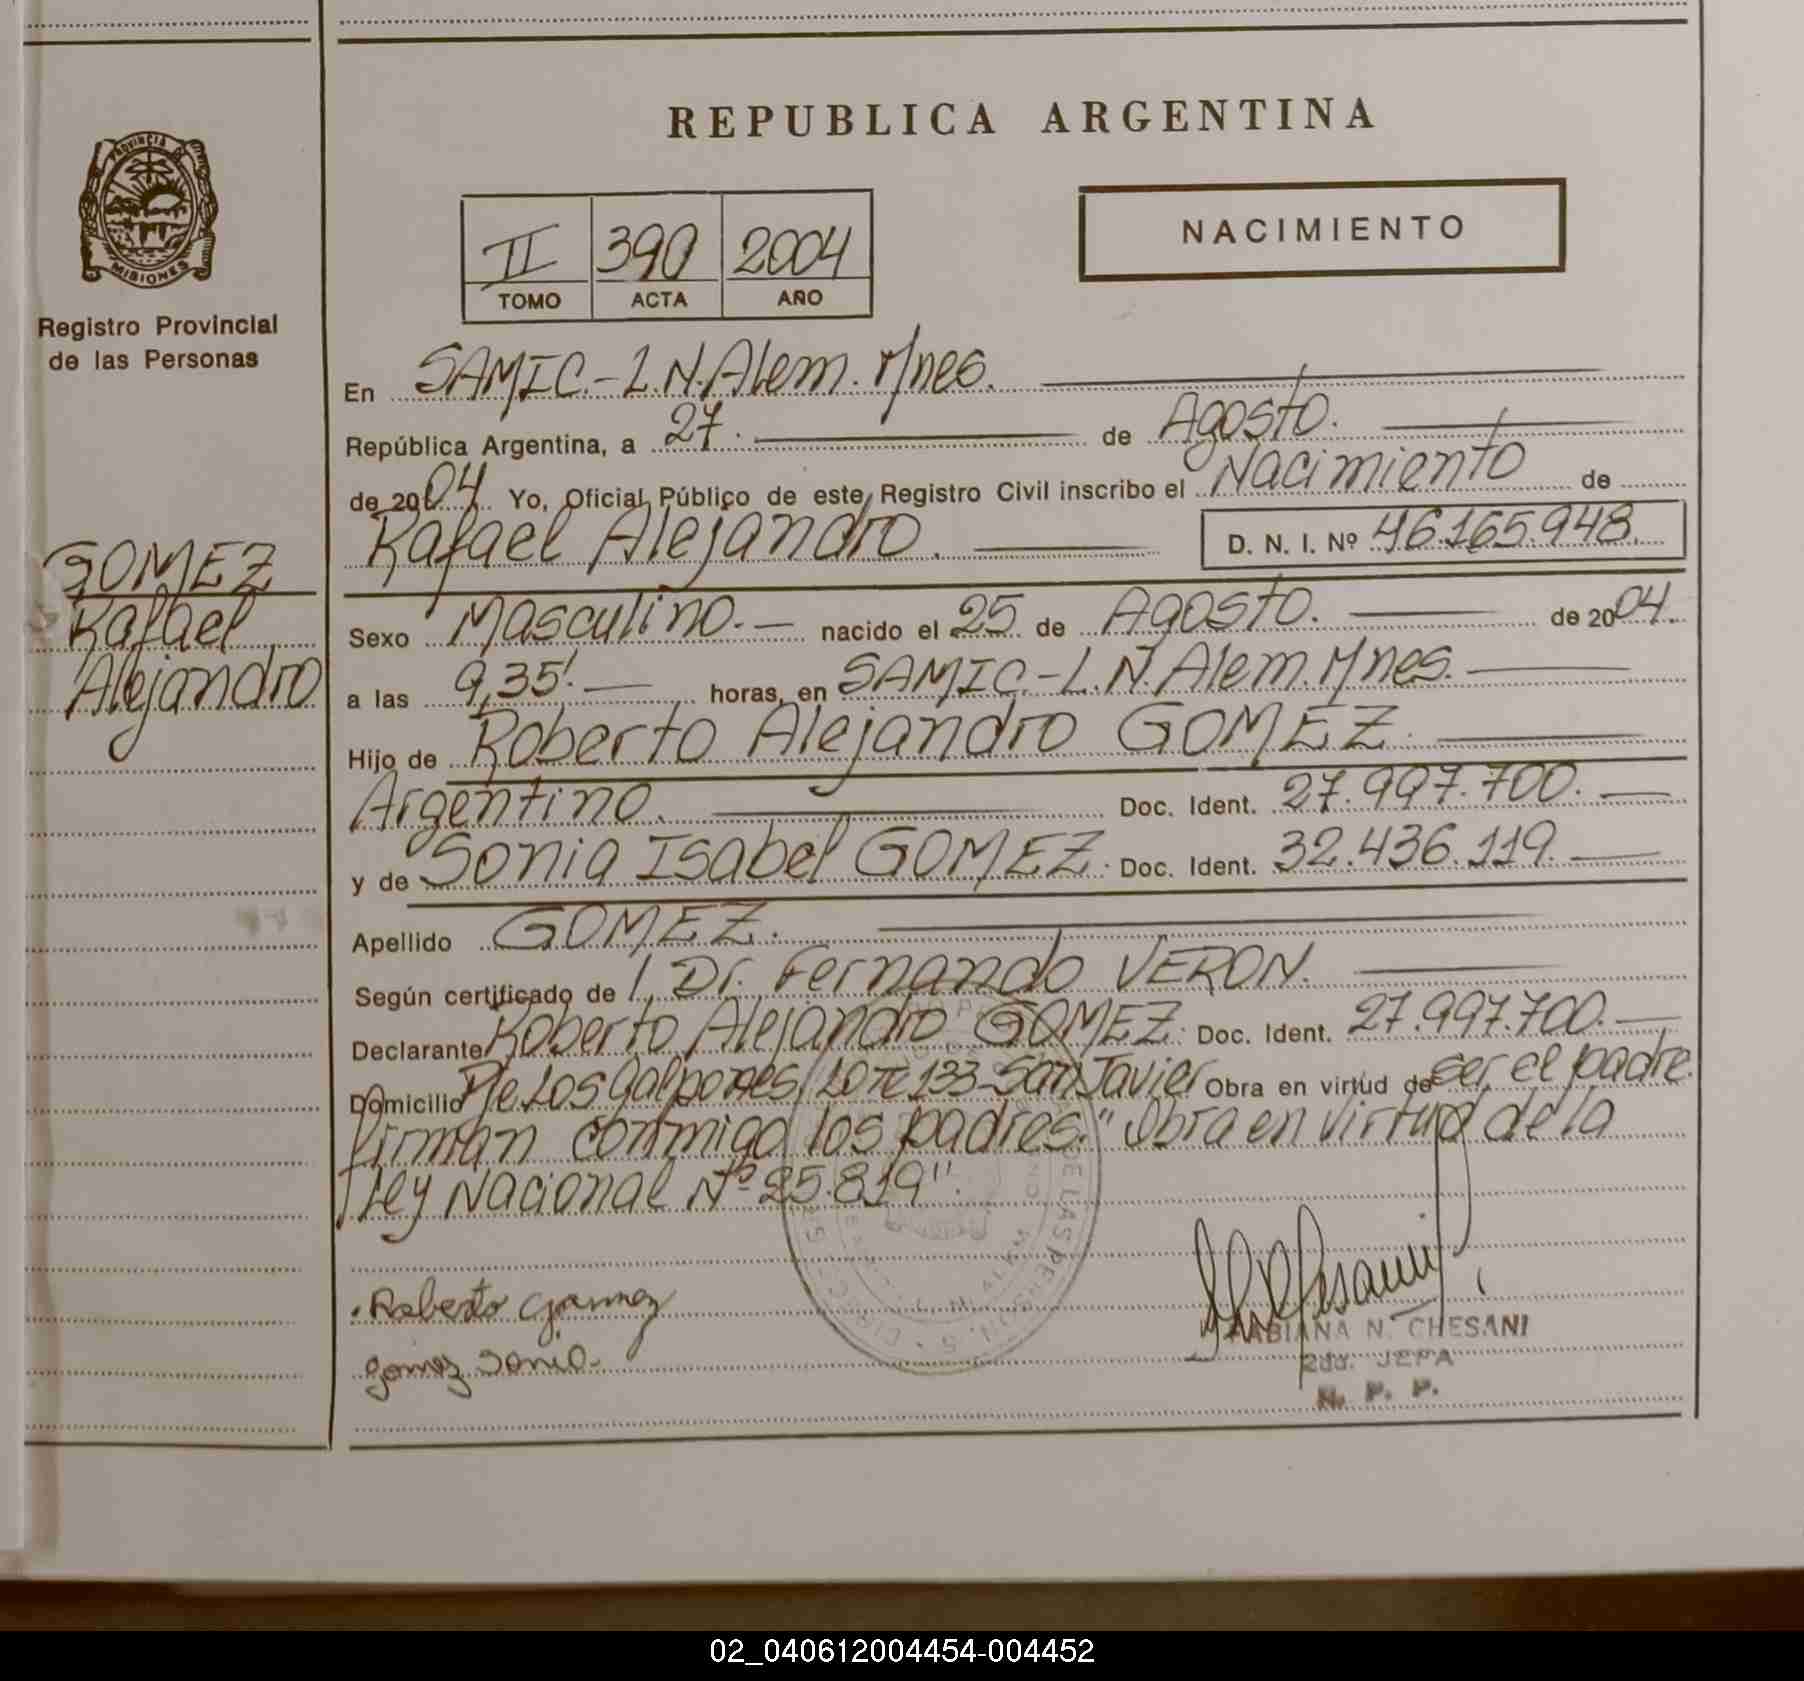 REPUBLICA ARGENTINA
PROVINCIA DE
MISIONES
Registro Provincial
de las Personas
II 390 2004
TOMO ACTA AÑO
NACIMIENTO
En SAMIC.-L.N.Alem. Mnes.
República Argentina, a 27. de Agosto.
de 2004. Yo, Oficial Público de este Registro Civil inscribo el Nacimiento de
Rafael Alejandro. D. N. I. Nº 46.165.948.
GOMEZ
Rafael
Alejandro
Sexo Masculino.- nacido el 25 de Agosto. de 2004.
a las 9,35'. horas, en SAMIC.-L.N.Alem.Mnes.
Hijo de Roberto Alejandro GOMEZ.
Argentino. Doc. Ident. 27.997.700.
y de Sonia Isabel GOMEZ. Doc. Ident. 32.436.119.
Apellido GOMEZ.
Según certificado de Dr. Fernando VERON.
Declarante Roberto Alejandro GOMEZ. Doc. Ident. 27.997.700.
Domicilio Pje Los Galpones, LOTE 133-San Javier Obra en virtud de ser el padre.
firman conmigo los padres." Obra en virtud de la
Ley Nacional Nº 25.819".
Roberto Gomez
Gomez Sonia
FABIANA N. CHESANI
2da. JEFA
R. P. P.
02_040612004454-004452